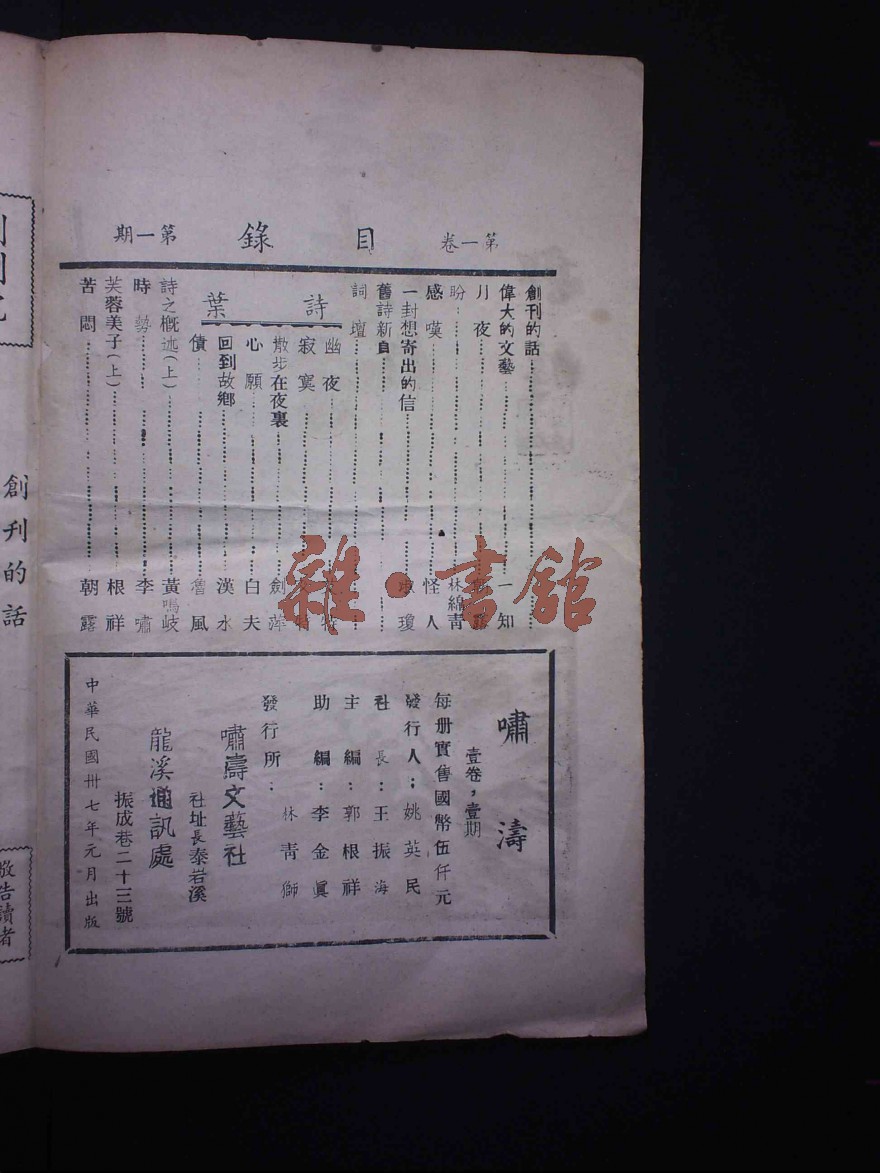 第一卷 目錄 第一期
創刊的話
偉大的文藝 一知
月夜
盼 林綿青
感嘆 怪人
一封想寄出的信 瓊
舊詩新自
詞壇
詩葉
幽夜
寂寞
散步在夜裏 劍萍
心願 白夫
回到故鄉 漢水
債 魯風
詩之概述(上) 黃鳴岐
時勢 李嘯
芙蓉美子(上) 根祥
苦悶 朝露
嘯濤
壹卷,壹期
每册實售國幣伍仟元
發行人;姚英民
社長:王振海
主編:郭根祥
助編:李金眞
林青獅
發行所:
嘯濤文藝社
社址長泰岩溪
龍溪通訊處
振成巷二十三號
中華民國卅七年元月出版
創刊的話
敬告讀者
雜·書館